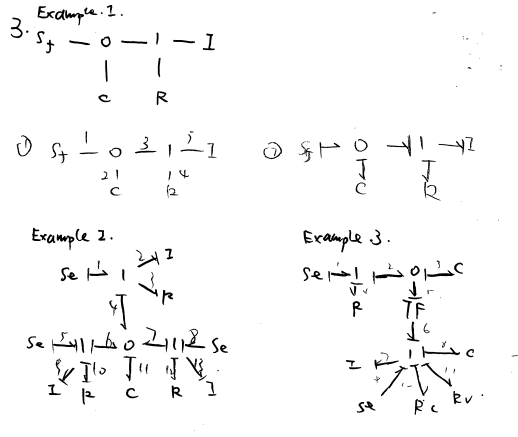 Example. 1.
3. Sf — 0 — 1 — I
C R
① Sf 1 0 3 1 5 I
2 4
C R
② Sf 0 1 I
C R
Example 2.
2 I
Se 1 1
3 R
4
Se 5 1 6 0 7 1 8 Se
9 10 11
I R C R I
Example 3.
Se 1 1 2 0 3 C
R TF
6
I 7 1 C
Se Rc Rv